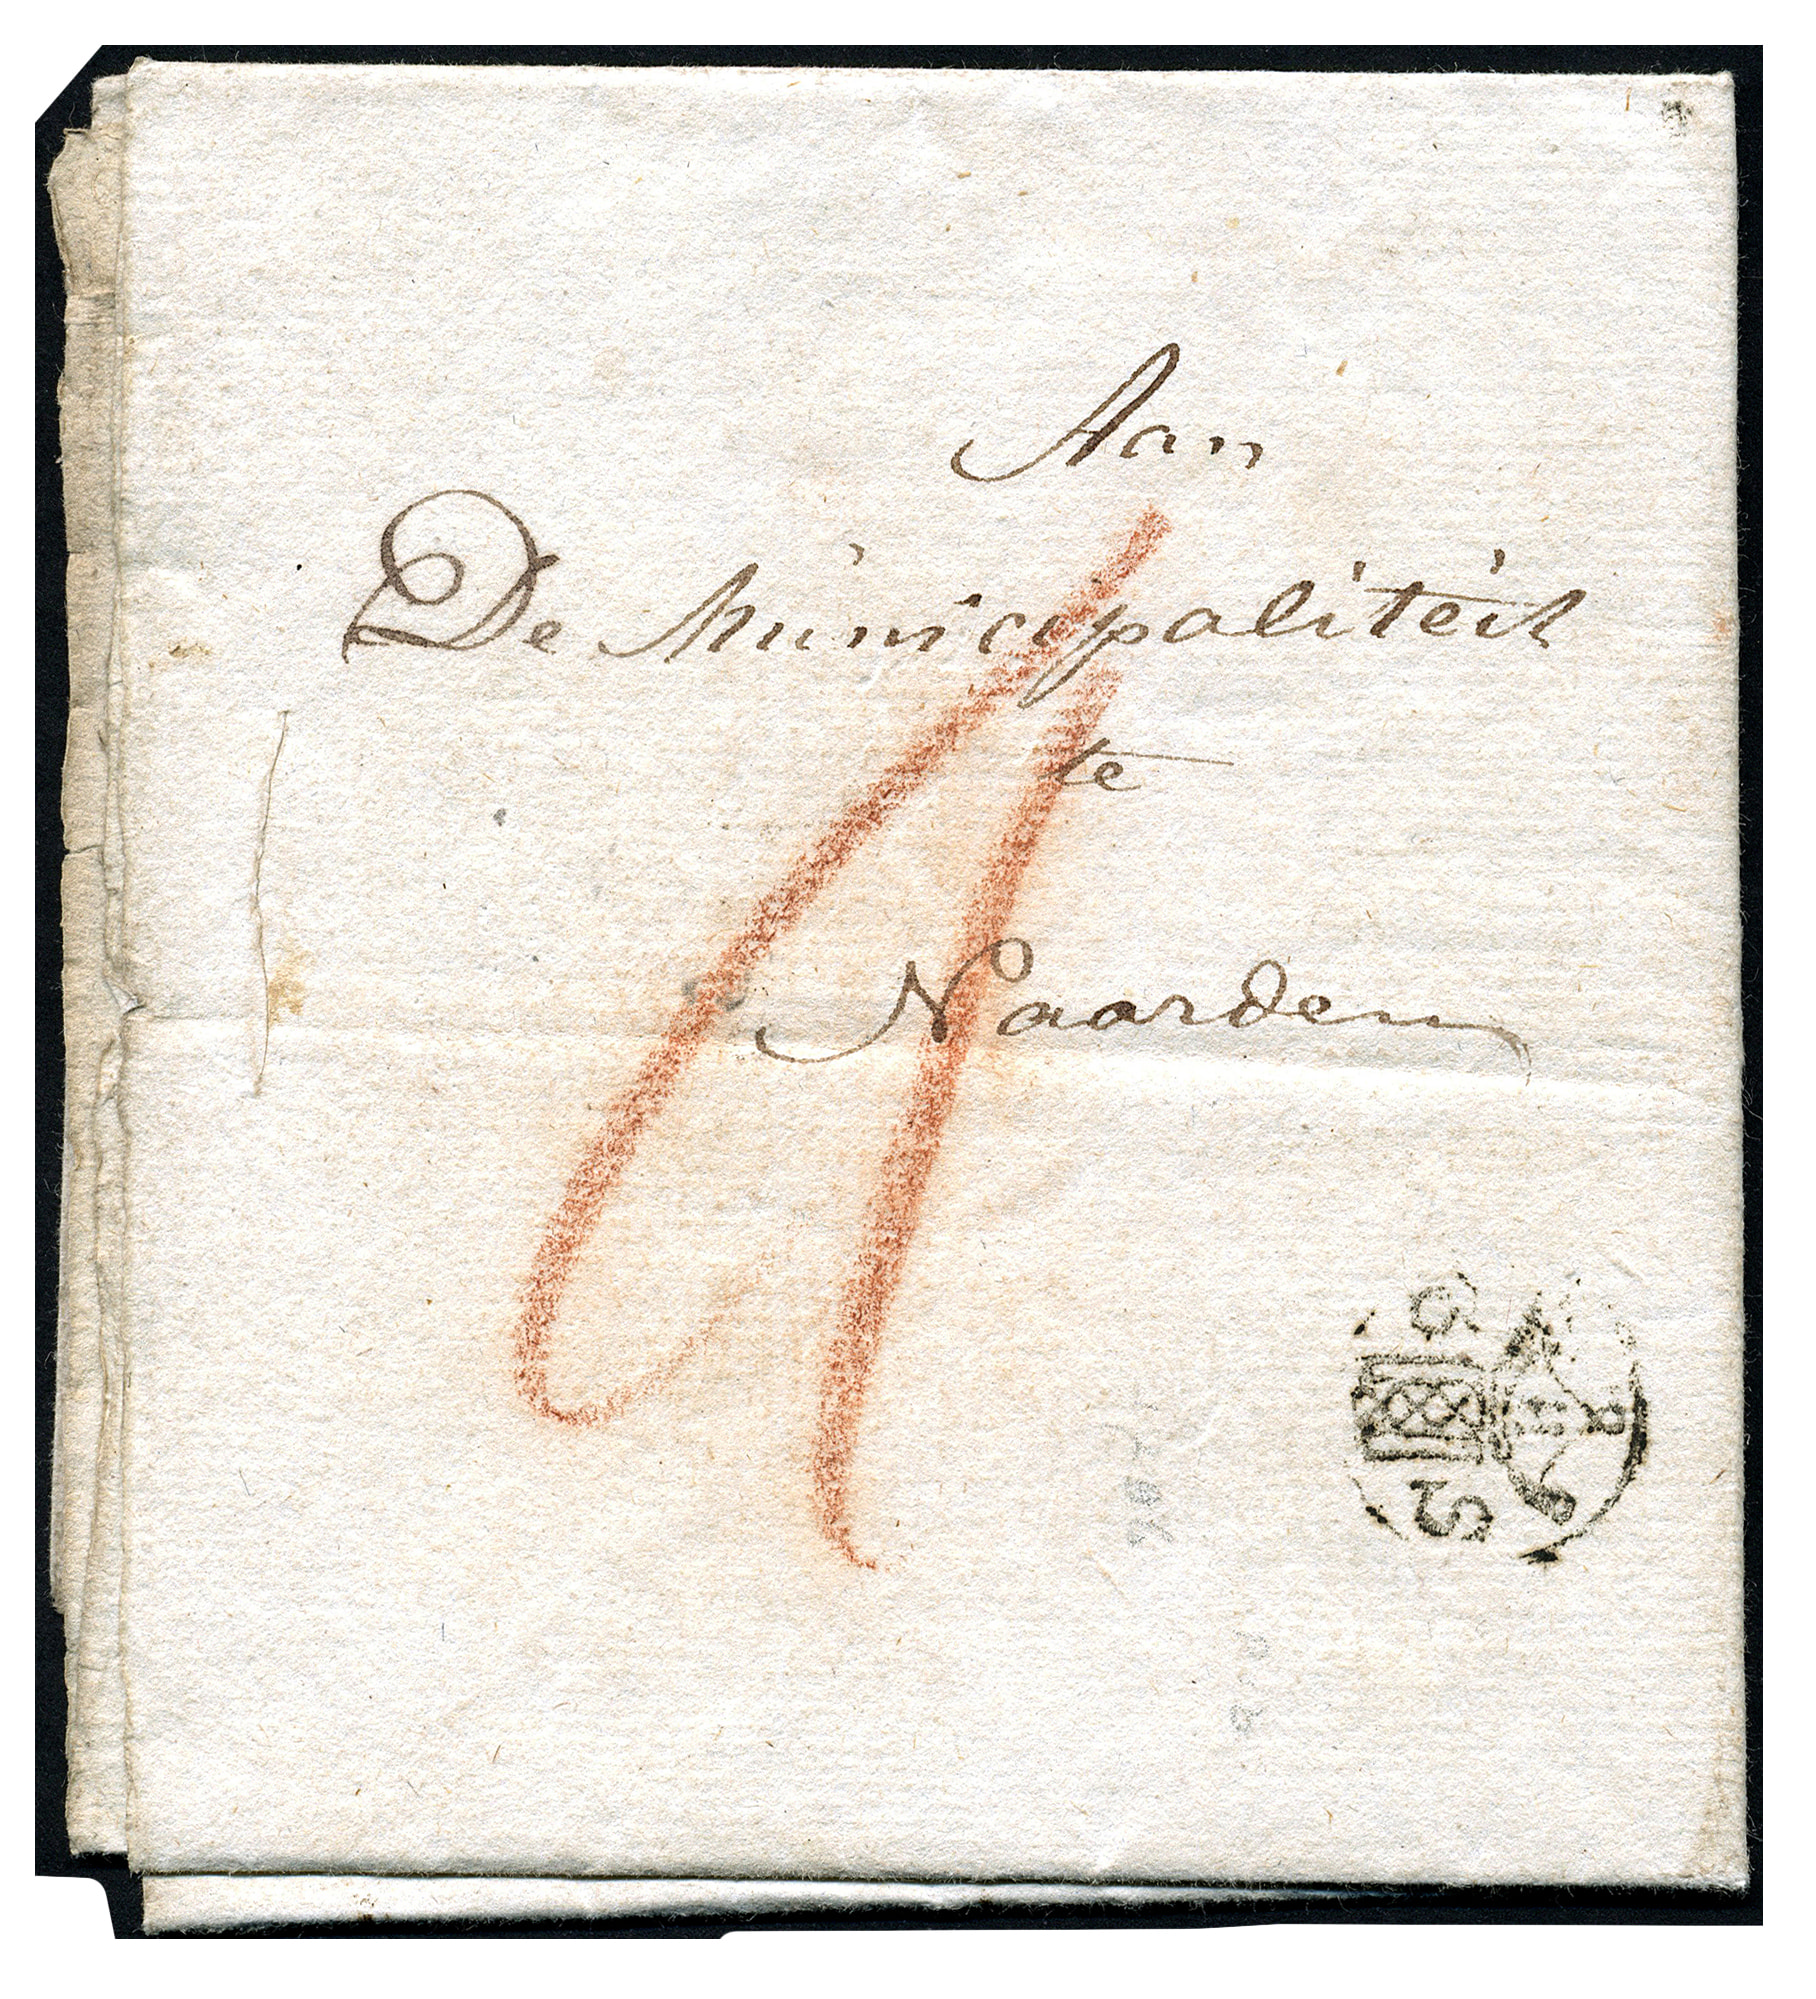 Aan
De Municipaliteit
te
Naarden